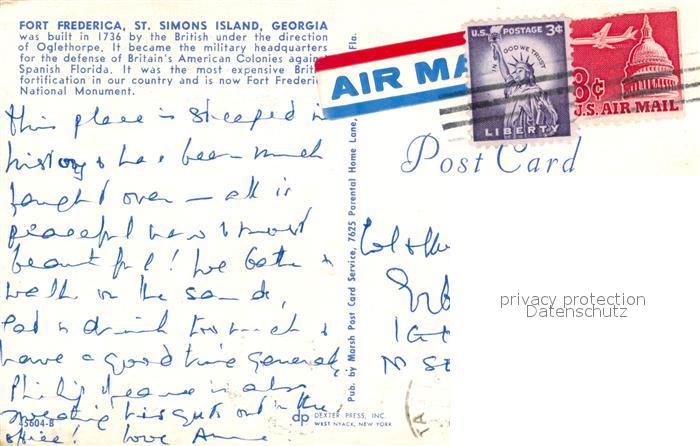 FORT FREDERICA, ST. SIMONS ISLAND, GEORGIA
was built in 1736 by the British under the direction
of Oglethorpe. It became the military headquarters
for the defense of Britain's American Colonies against
Spanish Florida. It was the most expensive British
fortification in our country and is now Fort Frederica
National Monument.
AIR MA
U.S. POSTAGE 3¢
IN GOD WE TRUST
LIBERTY
8¢
U.S. AIR MAIL
Post Card
This place is steeped in
history & has been much
fought over — all is
peaceful now & most
beautiful! We bathe &
walk in the sand,
eat & drink too much &
have a good time generally
Philip is also
sweating his guts out in the
Love Anne.
45604-B
Pub. by Marsh Post Card Service, 7625 Parental Home Lane, Fla.
dp DEXTER PRESS, INC.
WEST NYACK, NEW YORK
Col &
privacy protection
Datenschutz